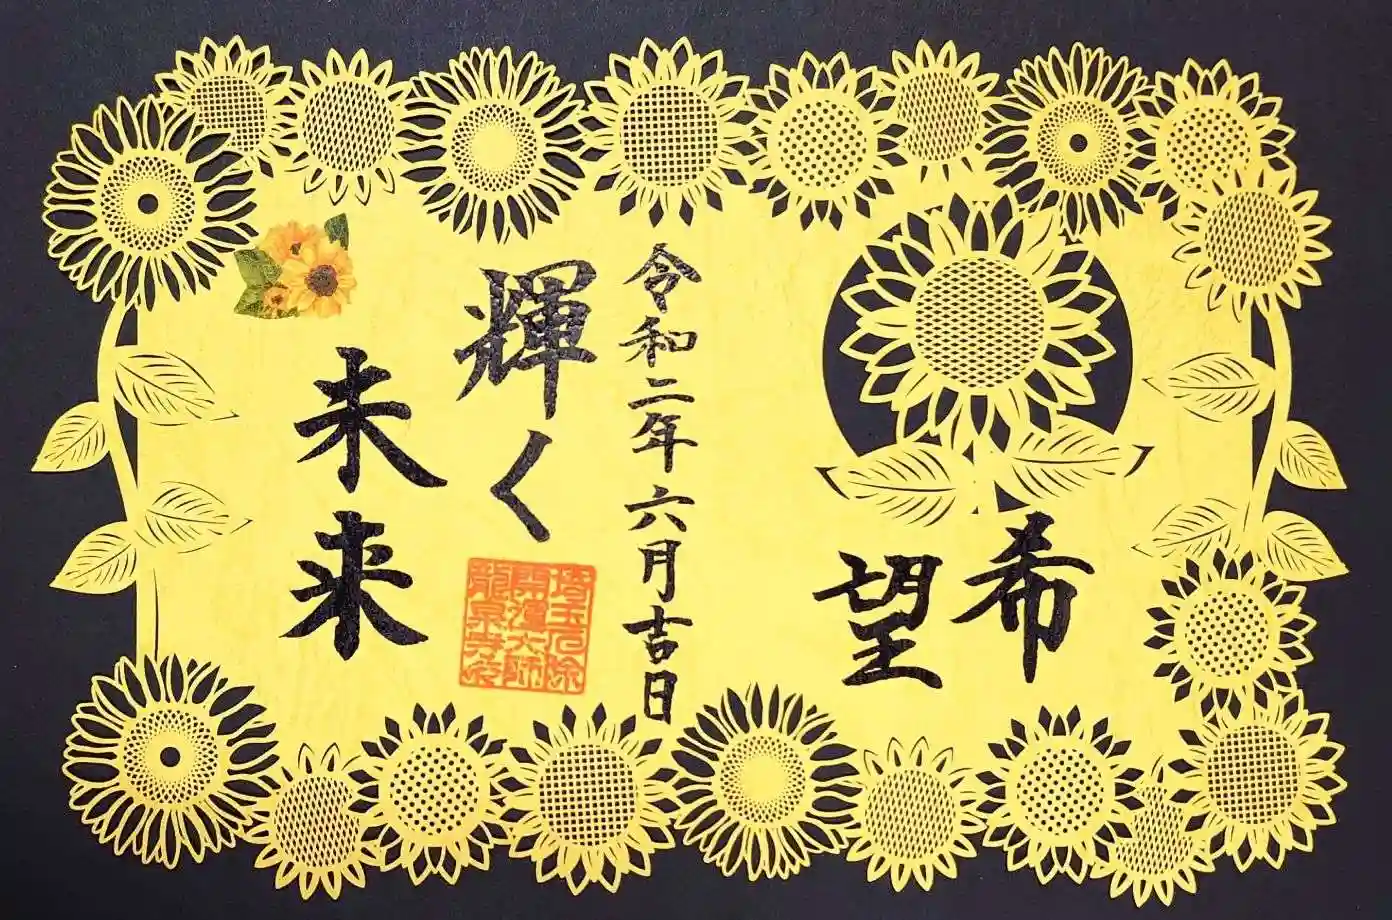 希
望
令和二年六月吉日
輝く
未来
埼玉厄除
開運大師
龍泉寺